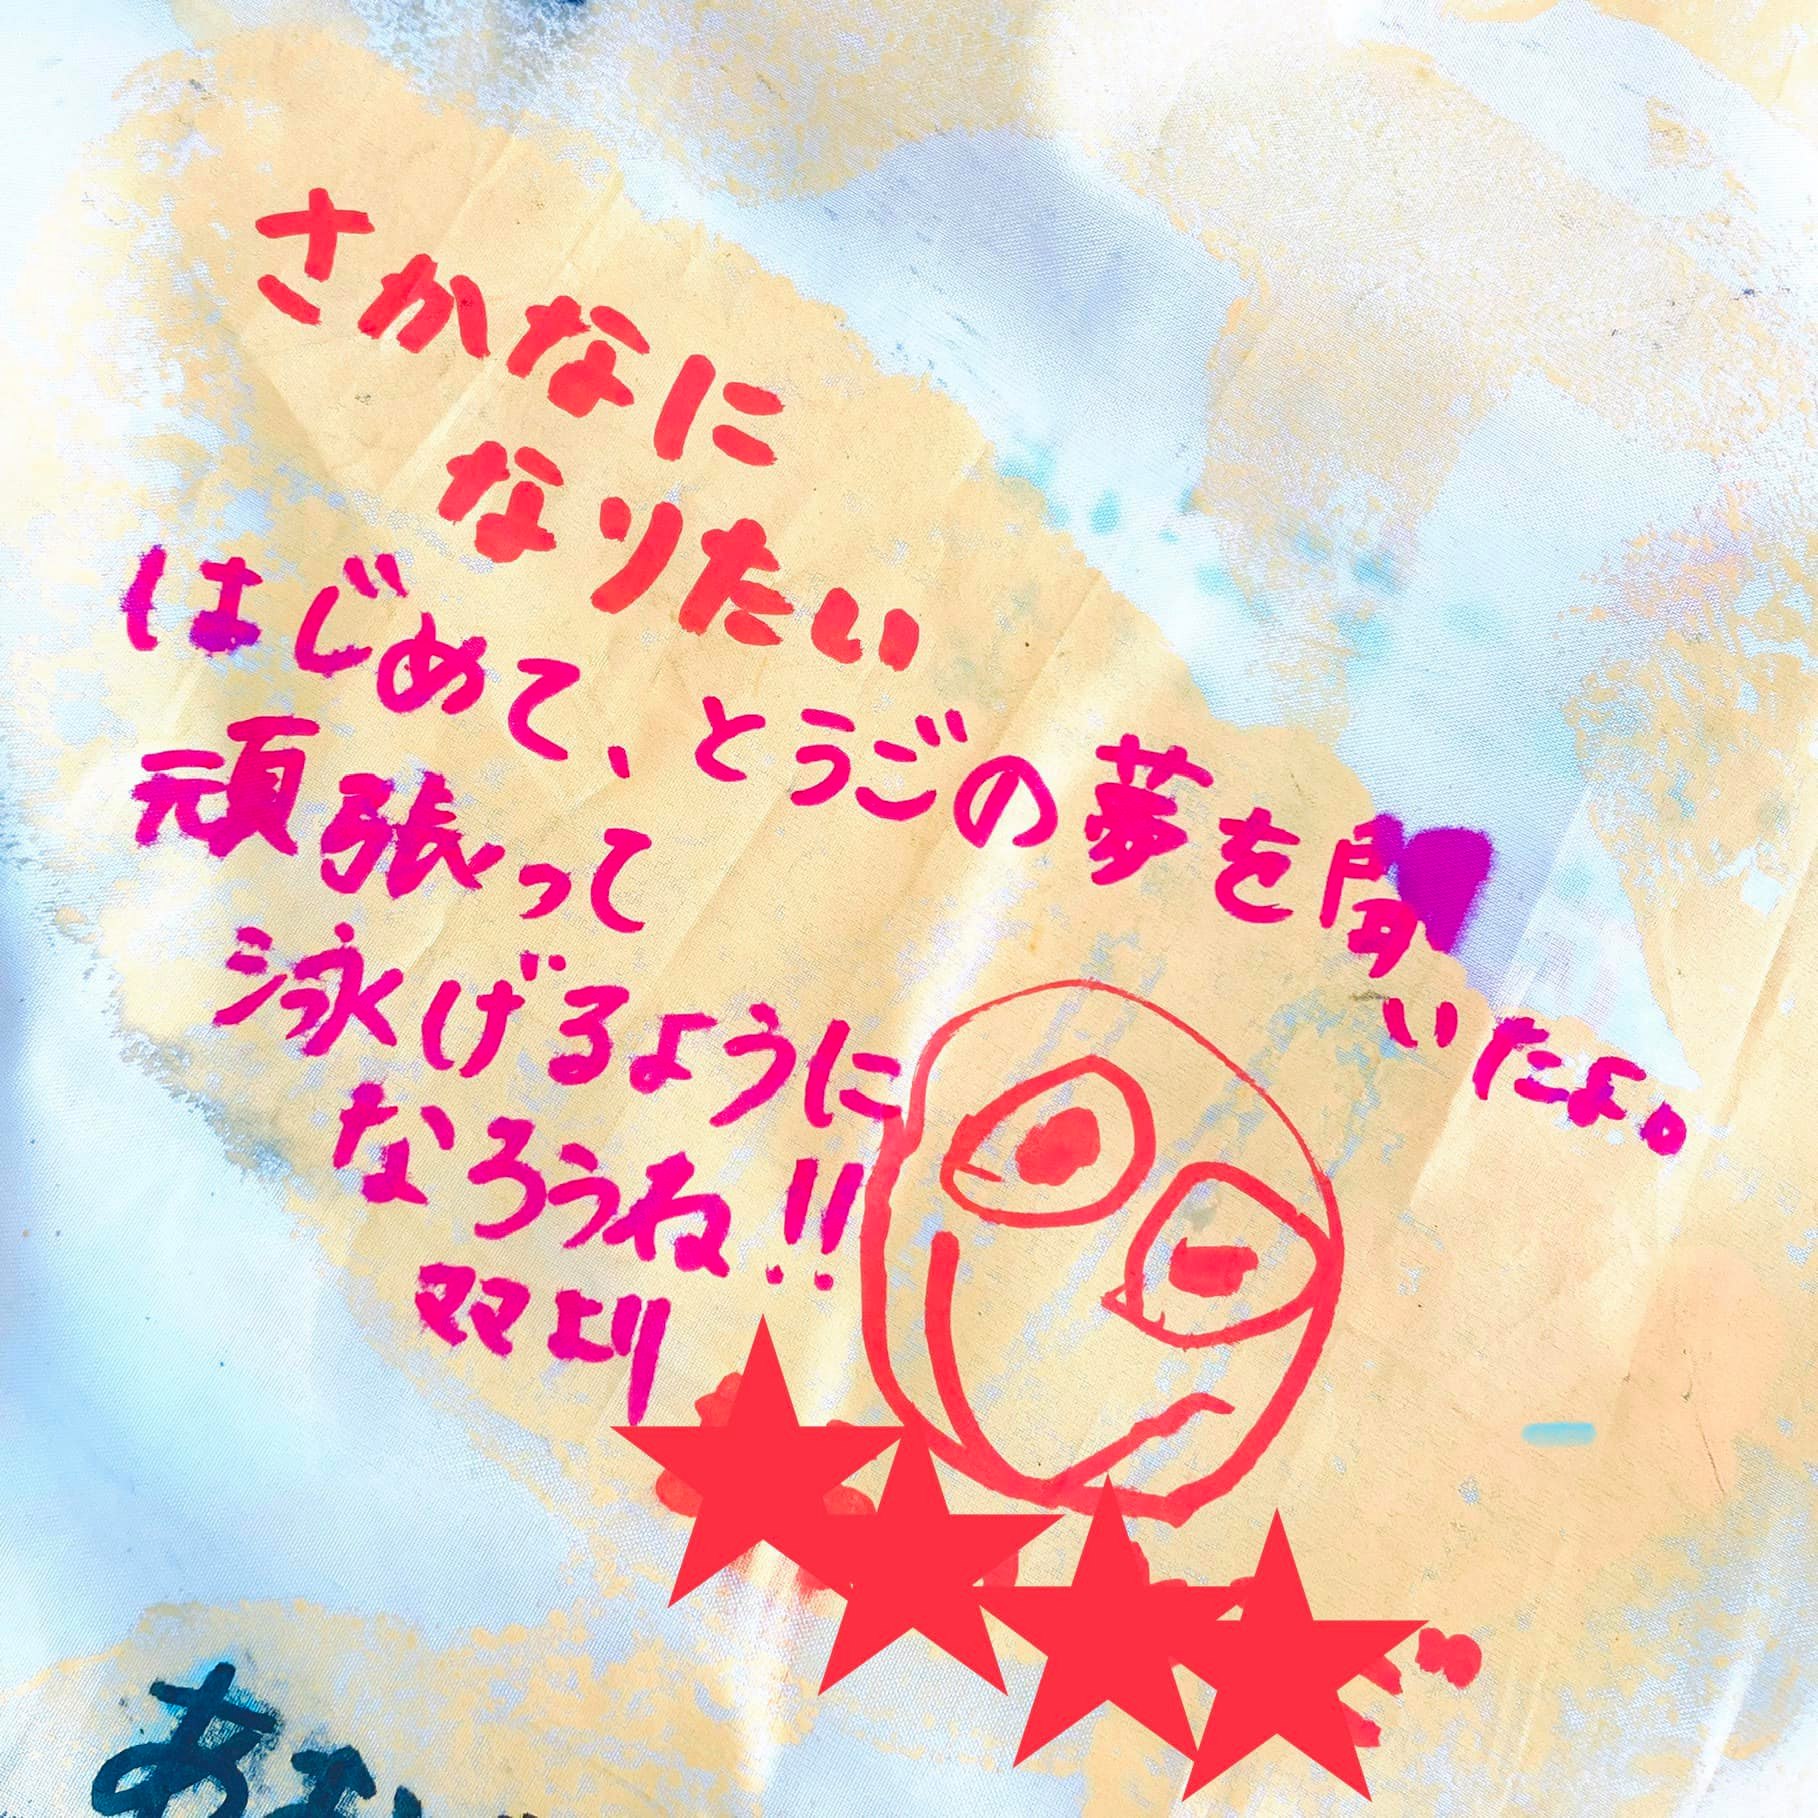 さかなに
なりたい
はじめて、とうごの夢を聞いたよ。
頑張って
泳げるように
なろうね!!
ママより